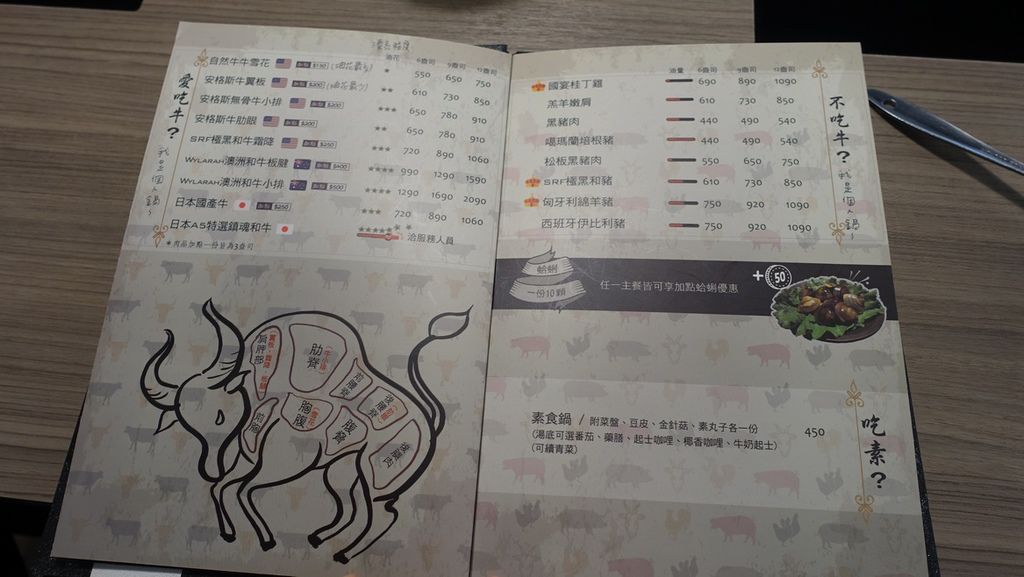 油花 6盎司 9盎司 12盎司
自然牛牛雪花 加點 $190 550 650 750
安格斯牛翼板 加點 $200 ★★ 610 730 850
安格斯無骨牛小排 加點 $200 ★★★ 650 780 910
安格斯牛肋眼 加點 $200 ★★ 650 780 910
SRF極黑和牛霜降 加點 $250 ★★★ 720 890 1060
WYLARAH澳洲和牛板腱 加點 $400 ★★★★ 990 1290 1590
WYLARAH澳洲和牛小排 加點 $500 ★★★★ 1290 1690 2090
日本國產牛 加點 $250 ★★★ 720 890 1060
日本A5特選鎮魂和牛 洽服務人員
★肉品加點一份皆為3盎司
愛吃牛?
我是個人鍋~
肩胛部
肋脊
胸腹
腹脅
前胸
後腿肉
油量 6盎司 9盎司 12盎司
國宴桂丁雞 690 890 1090
羔羊嫩肩 610 730 850
黑豬肉 440 490 540
噶瑪蘭培根豬 440 490 540
松板黑豬肉 550 650 750
SRF極黑和豬 610 730 850
匈牙利綿羊豬 750 920 1090
西班牙伊比利豬 750 920 1090
不吃牛?
我是個人鍋~
蛤蜊
一份10顆
任一主餐皆可享加點蛤蜊優惠
+50
素食鍋 / 附菜盤、豆皮、金針菇、素丸子各一份 450
(湯底可選番茄、藥膳、起士咖哩、椰香咖哩、牛奶起士)
(可續青菜)
吃素?